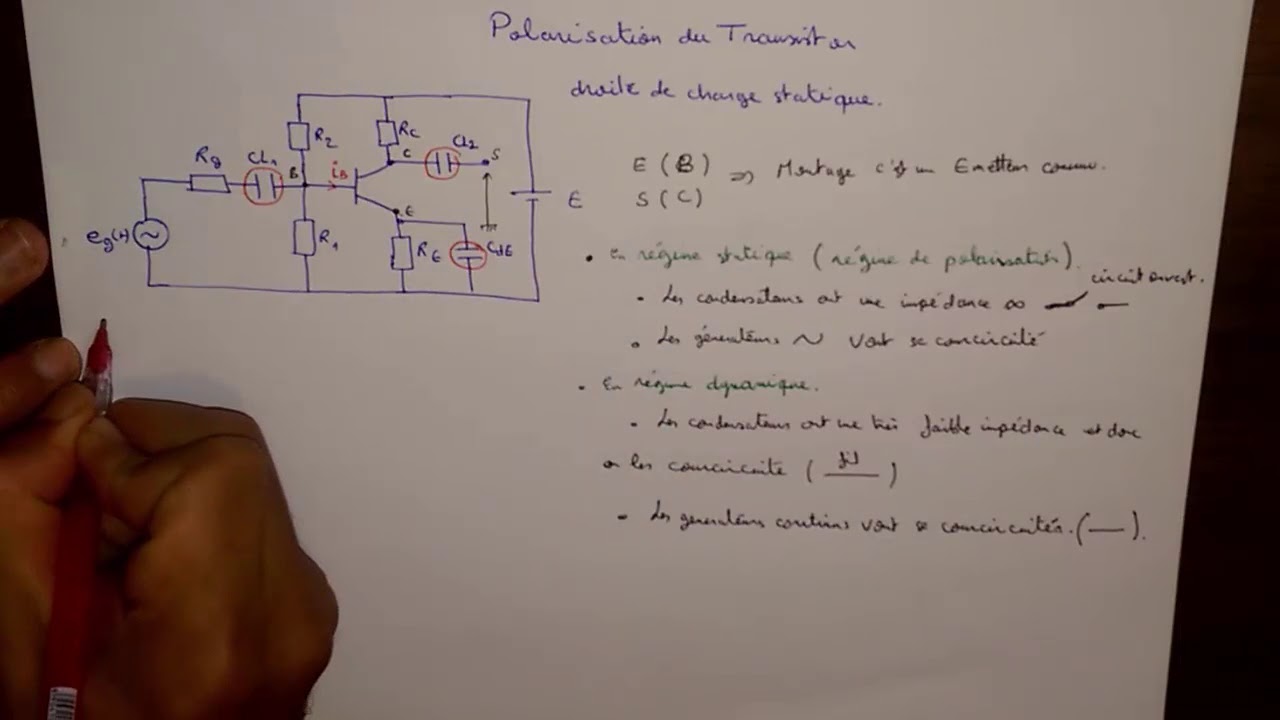 Polarisation du Transistor
droite de charge statique.
R2
RC
CL2
S
C
Rg
CL1
B
iB
E
E
eg(t)
R1
RE
CdE
E (B) => Montage c'est un Emetteur commun.
S (C)
• En régime statique (régime de polarisation).
circuit ouvert.
• Les condensateurs ont une impédance ∞
• Les générateurs ~ sont se courcircuité
• En régime dynamique.
• Les condensateurs ont une très faible impédance et donc
on les courcircuite ( fil )
• Les generateurs continus sont se courcircuités. (—).